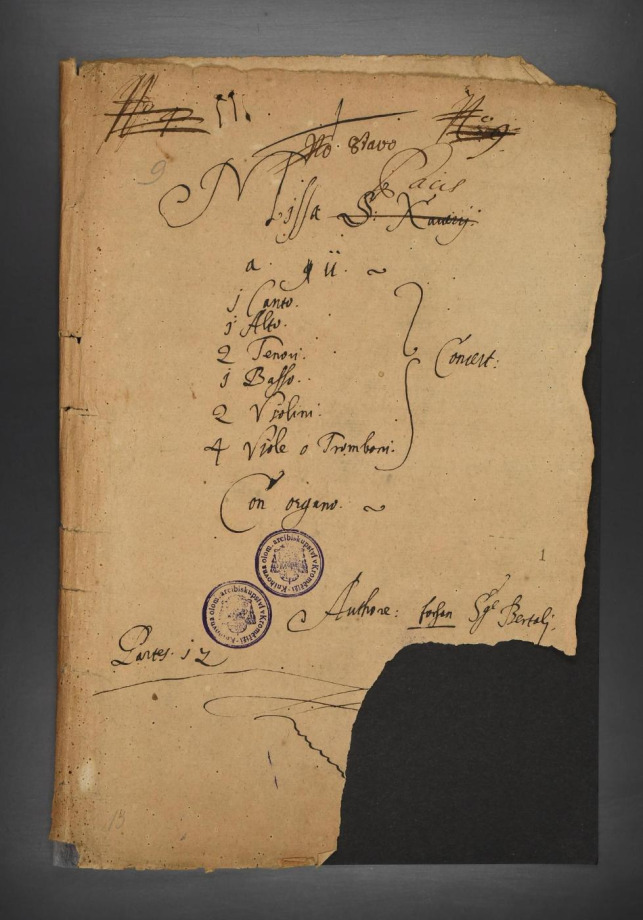 No. 9. III
No. 9
No. Stavo
9
Pacis
Missa S: Xaverij.
a. 11.
1 Canto.
1 Alto.
2 Tenori.
1 Basso.
2 Violini.
4 Viole o Tromboni.
Concert:
Con organo.
1
Knihovna olom. arcibiskupství v Kroměříži
Knihovna olom. arcibiskupství v Kroměříži
Authore: Bertalj.
Partes. 12
15